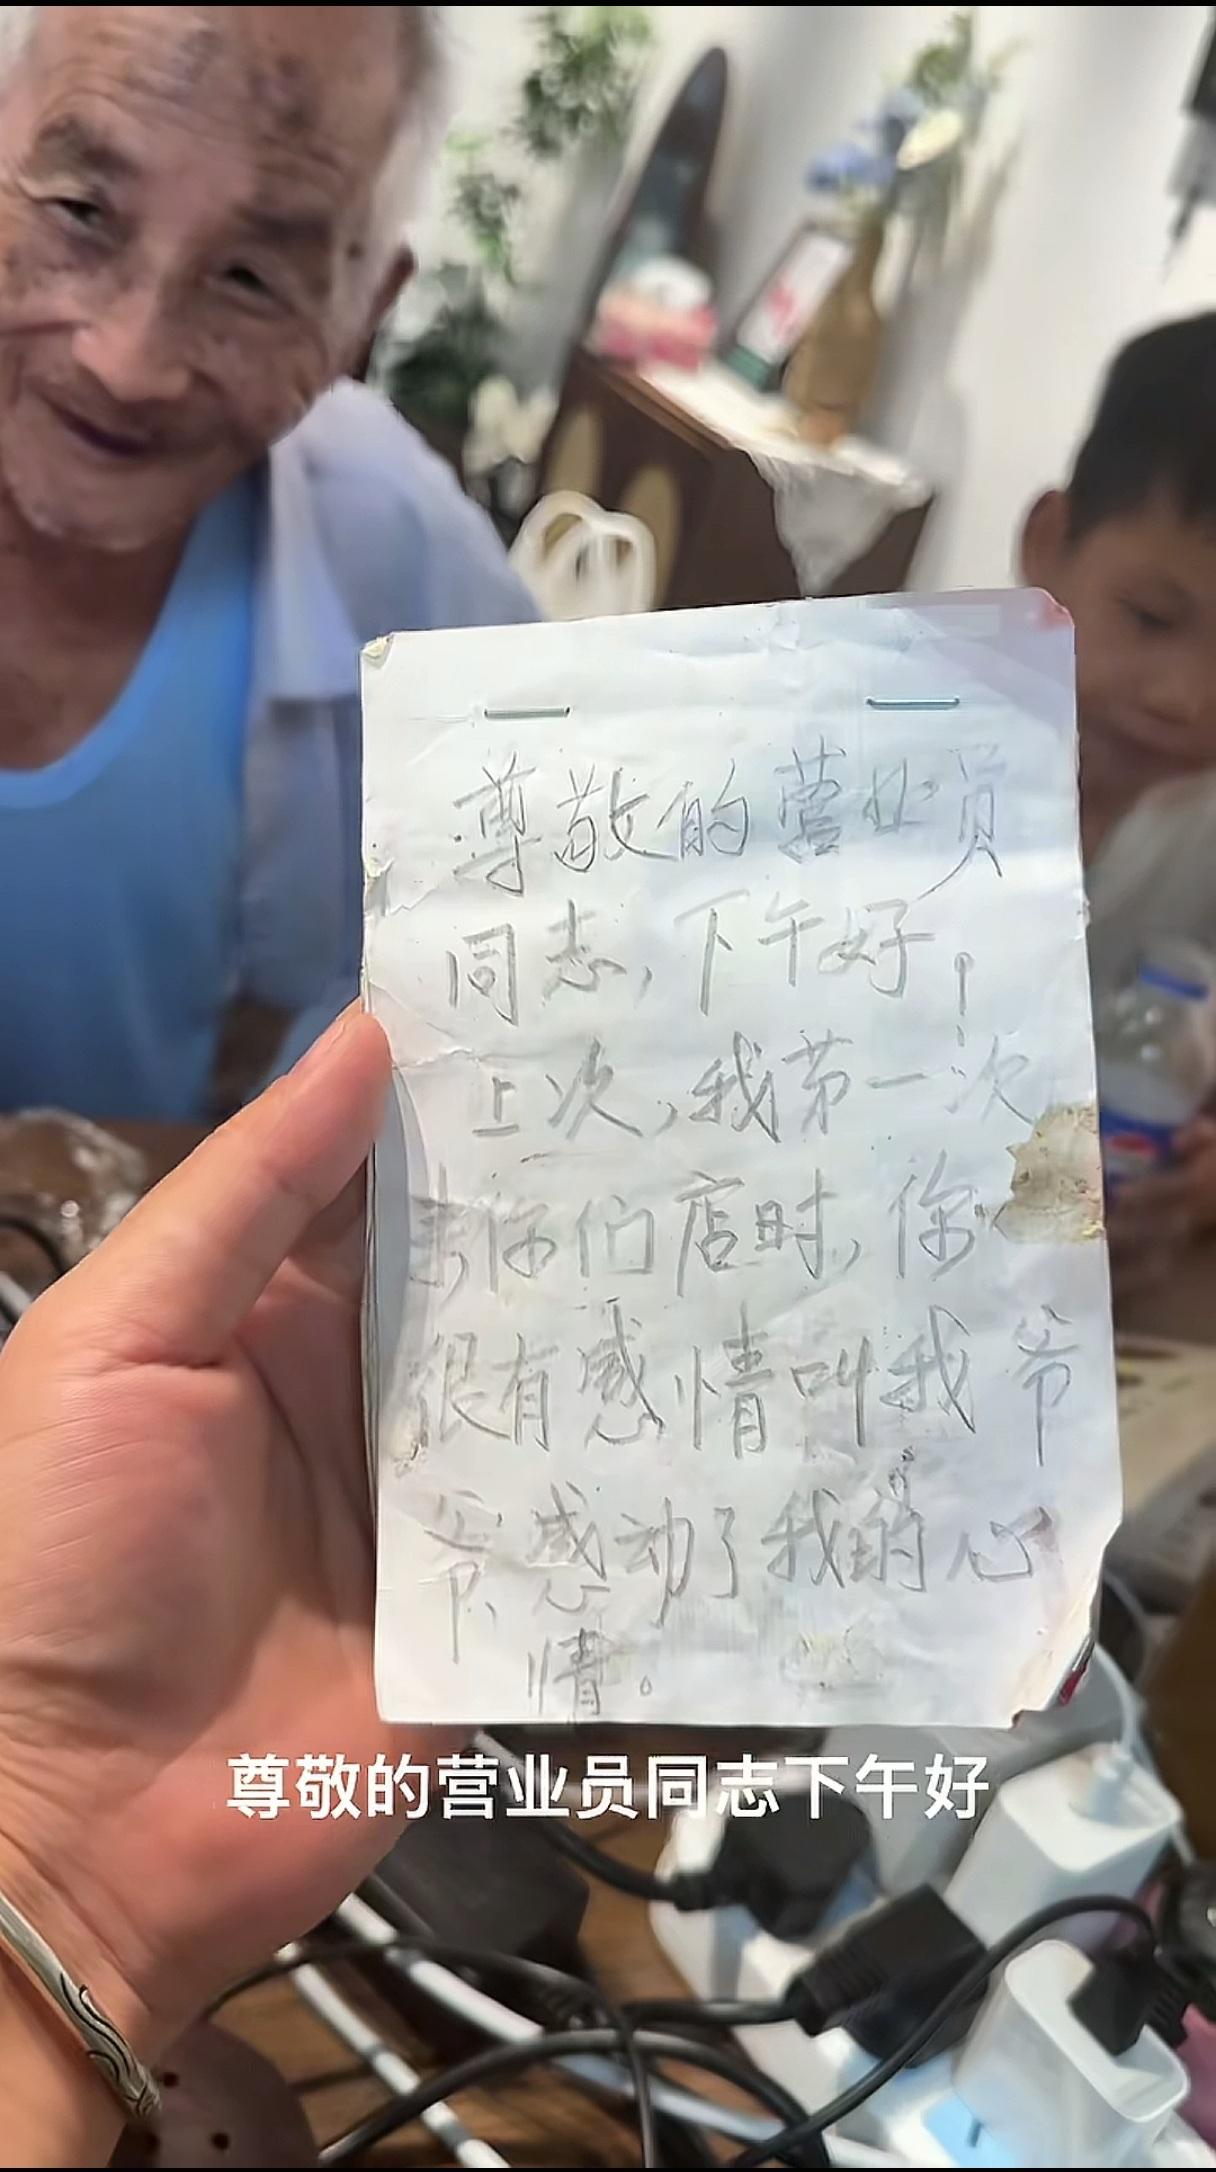 尊敬的营业员
同志，下午好！
上次，我第一次
来你们店时，你
很有感情叫我爷
爷，感动了我的心
情。
尊敬的营业员同志下午好